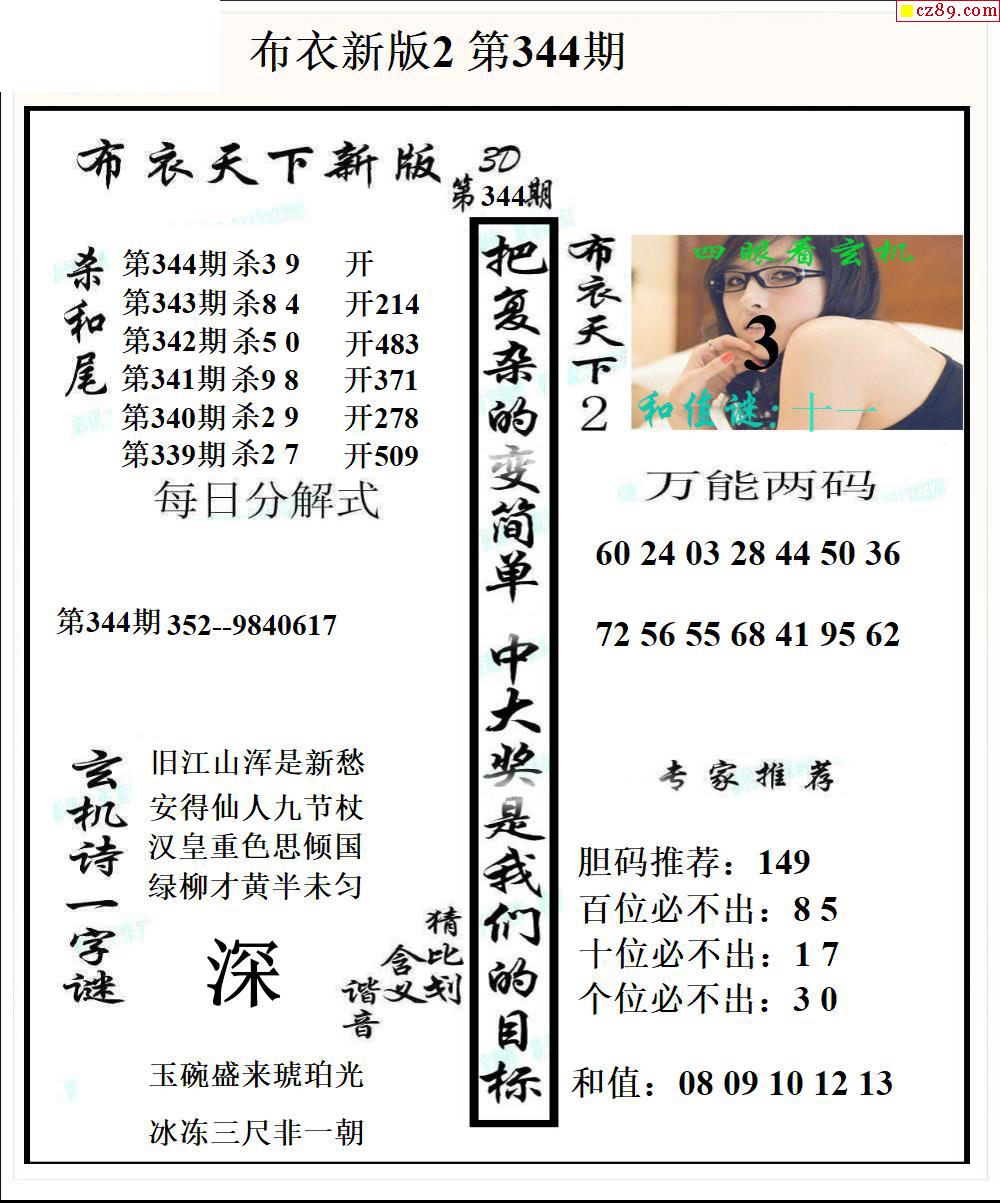 cz89.com
布衣新版2 第344期
布衣天下新版 3D
第344期
杀和尾
第344期 杀3 9 开
第343期 杀8 4 开214
第342期 杀5 0 开483
第341期 杀9 8 开371
第340期 杀2 9 开278
第339期 杀2 7 开509
每日分解式
第344期 352--9840617
玄机诗一字谜
旧江山浑是新愁
安得仙人九节杖
汉皇重色思倾国
绿柳才黄半未匀
深
猜比划
含义
谐音
玉碗盛来琥珀光
冰冻三尺非一朝
把复杂的变简单 中大奖是我们的目标
布衣天下2
四眼看玄机
3
和值谜:十一
万能两码
60 24 03 28 44 50 36
72 56 55 68 41 95 62
专家推荐
胆码推荐：149
百位必不出：8 5
十位必不出：1 7
个位必不出：3 0
和值：08 09 10 12 13